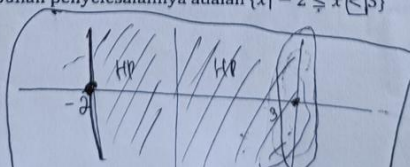 penyelesaiannya adalah {x| -2 ≤ x < 3}
HP HP
-2 3